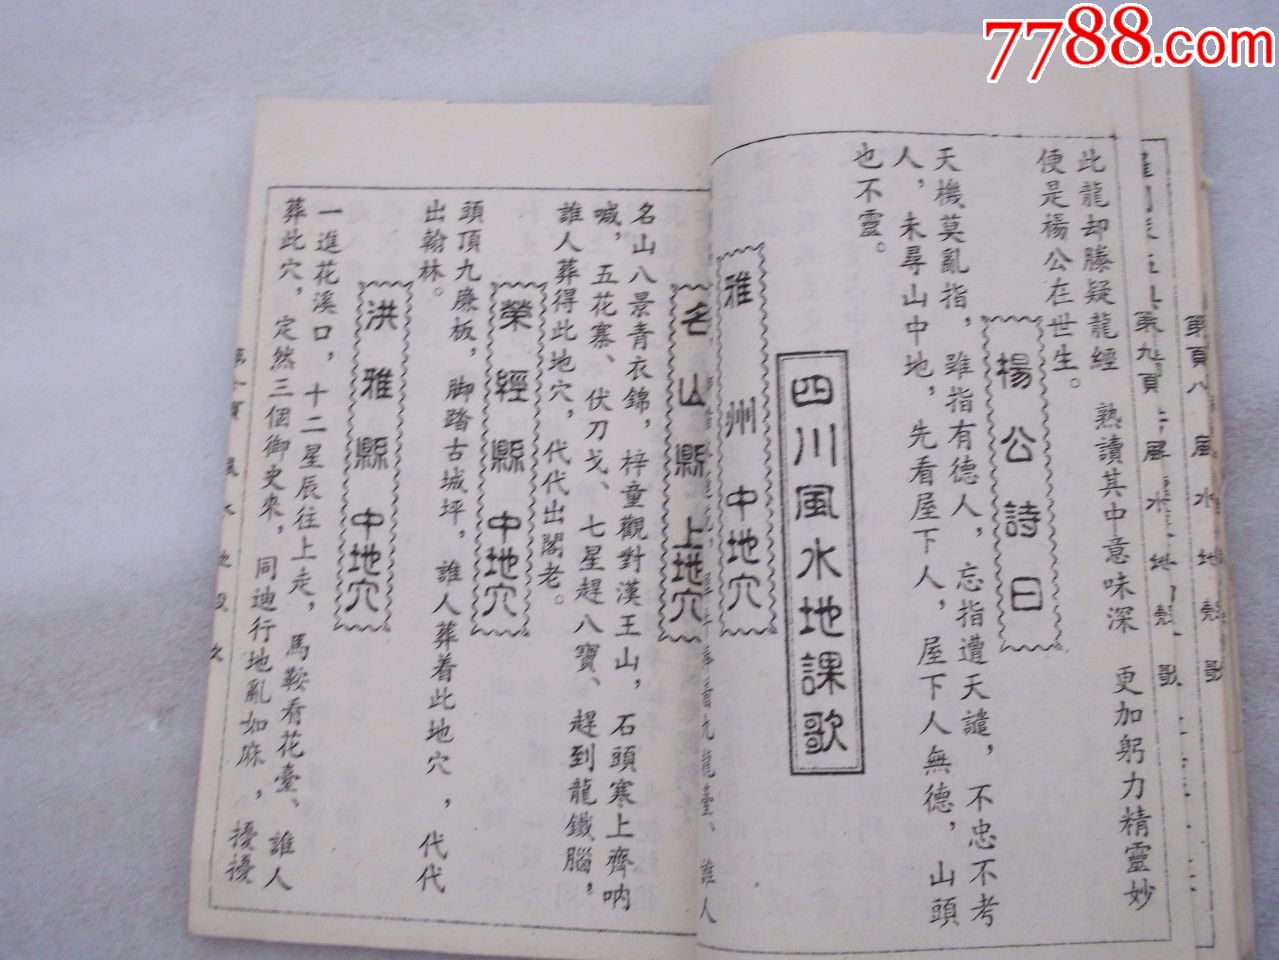 7788.com
此龍却勝疑龍經 熟讀其中意味深 更加躬力精靈妙
便是楊公在世生。
楊公詩曰
天機莫亂指,雖指有德人,忘指遭天譴,不忠不考
人,未尋山中地,先看屋下人,屋下人無德,山頭
也不靈。
四川風水地課歌
雅州中地穴
誰人
名山縣上地穴
名山八景青衣錦,梓童觀對漢王山,石頭寒上齊吶
喊,五花寨、伏刀戈、七星趕八寶、趕到龍鐵腦,
誰人葬得此地穴,代代出閣老。
榮經縣中地穴
頭頂九廉板,脚踏古城坪,誰人葬着此地穴,代代
出翰林。
洪雅縣中地穴
一進花溪口,十二星辰往上走,馬鞍看花臺、誰人
葬此穴,定然三個御史來,同迪行地亂如麻,擾擾
第九頁 風水地
第八頁 風水地 歌